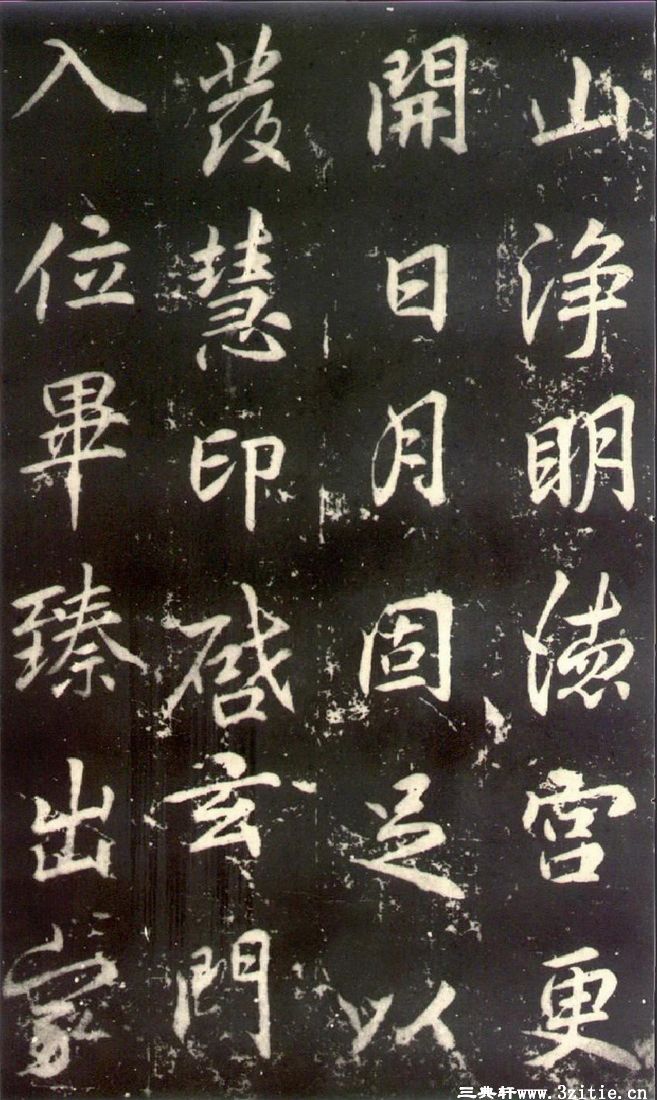 山浄明徳宮更
開日月固足以
發慧印啓玄門
入位畢臻出家
三典轩www.3zitie.cn